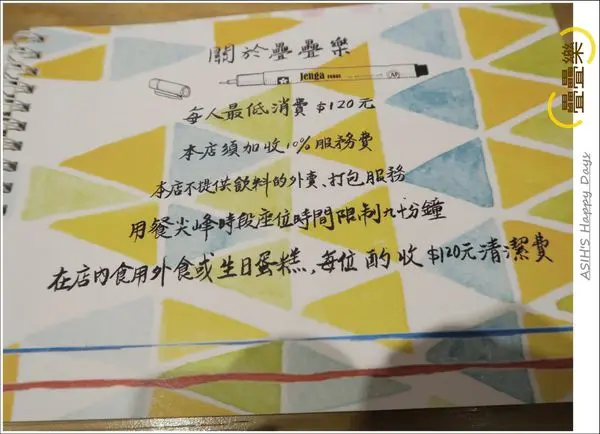 關於疊疊樂
Jenga
每人最低消費 $120元
本店須加收10%服務費
本店不提供飲料的外賣、打包服務
用餐尖峰時段座位時間限制九十分鐘
在店內食用外食或生日蛋糕,每位酌收$120元清潔費
疊疊樂
ASIH'S Happy Days